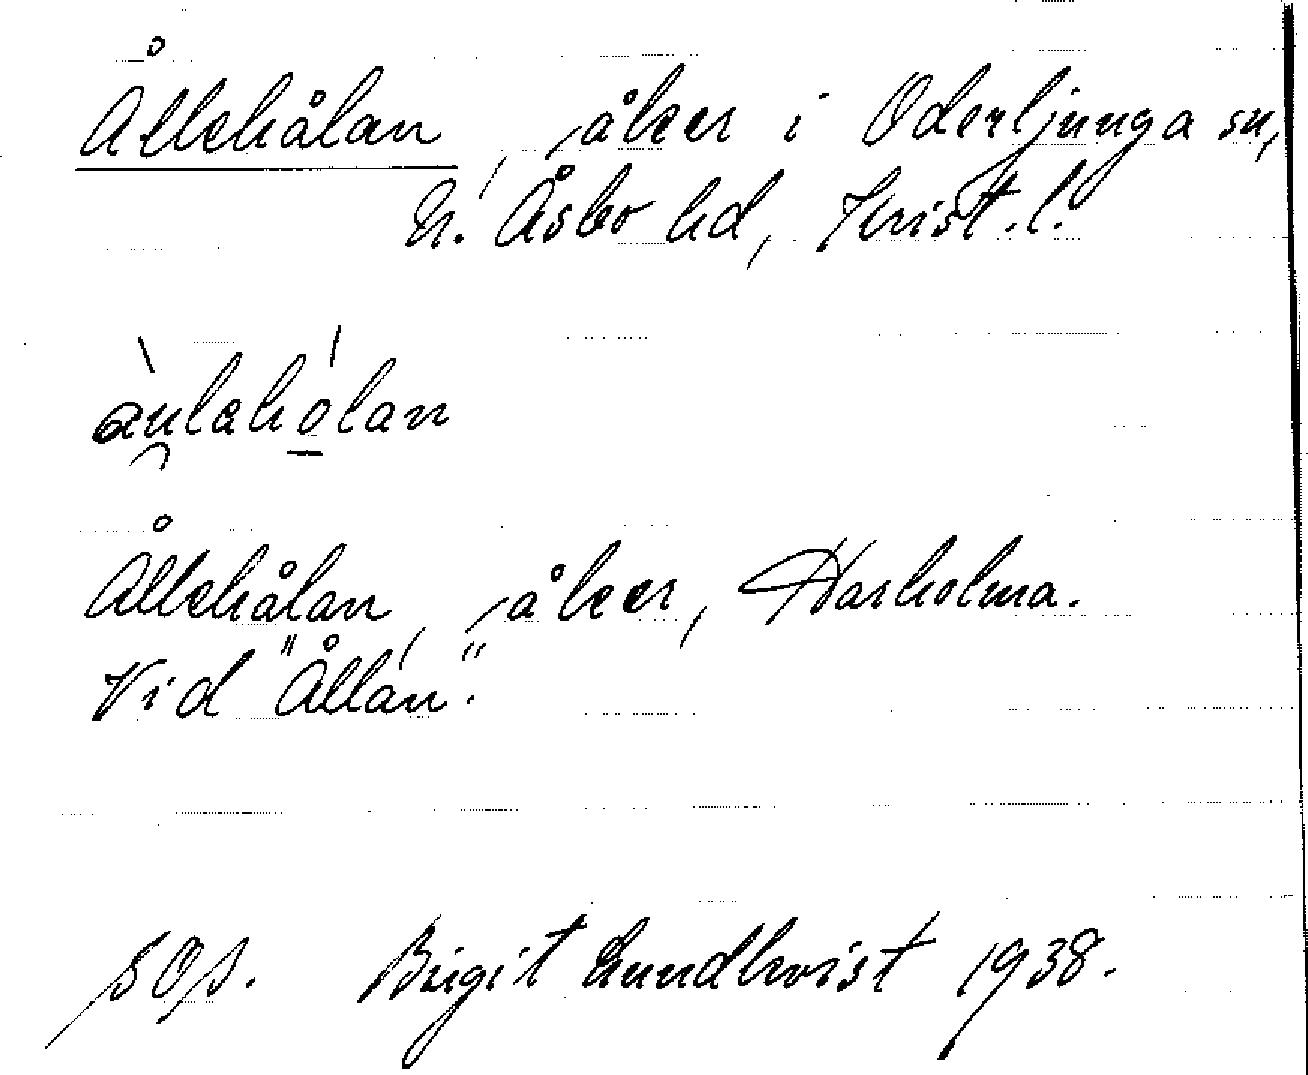 Ållehålan, åker i Oderljunga sn,
N. Åsbo hd, Krist. l.
Ållehålan, åker, Harholma.
Vid "Ållån".
Birgit Lundkvist 1938.